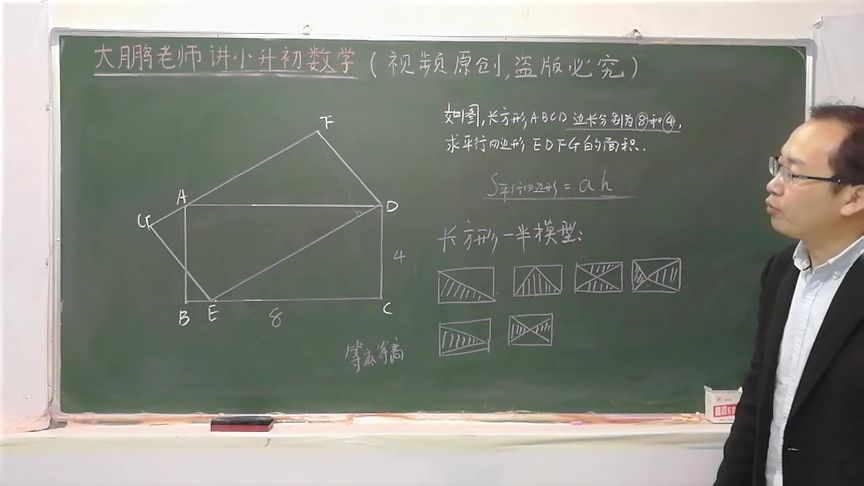 大鹏老师讲小升初数学(视频原创,盗版必究)
如图,长方形ABCD边长分别为8和4,
求平行四边形EDFG的面积.
S平行四边形=ah
长方形一半模型:
F
A
G
D
4
B E 8 C
等底等高